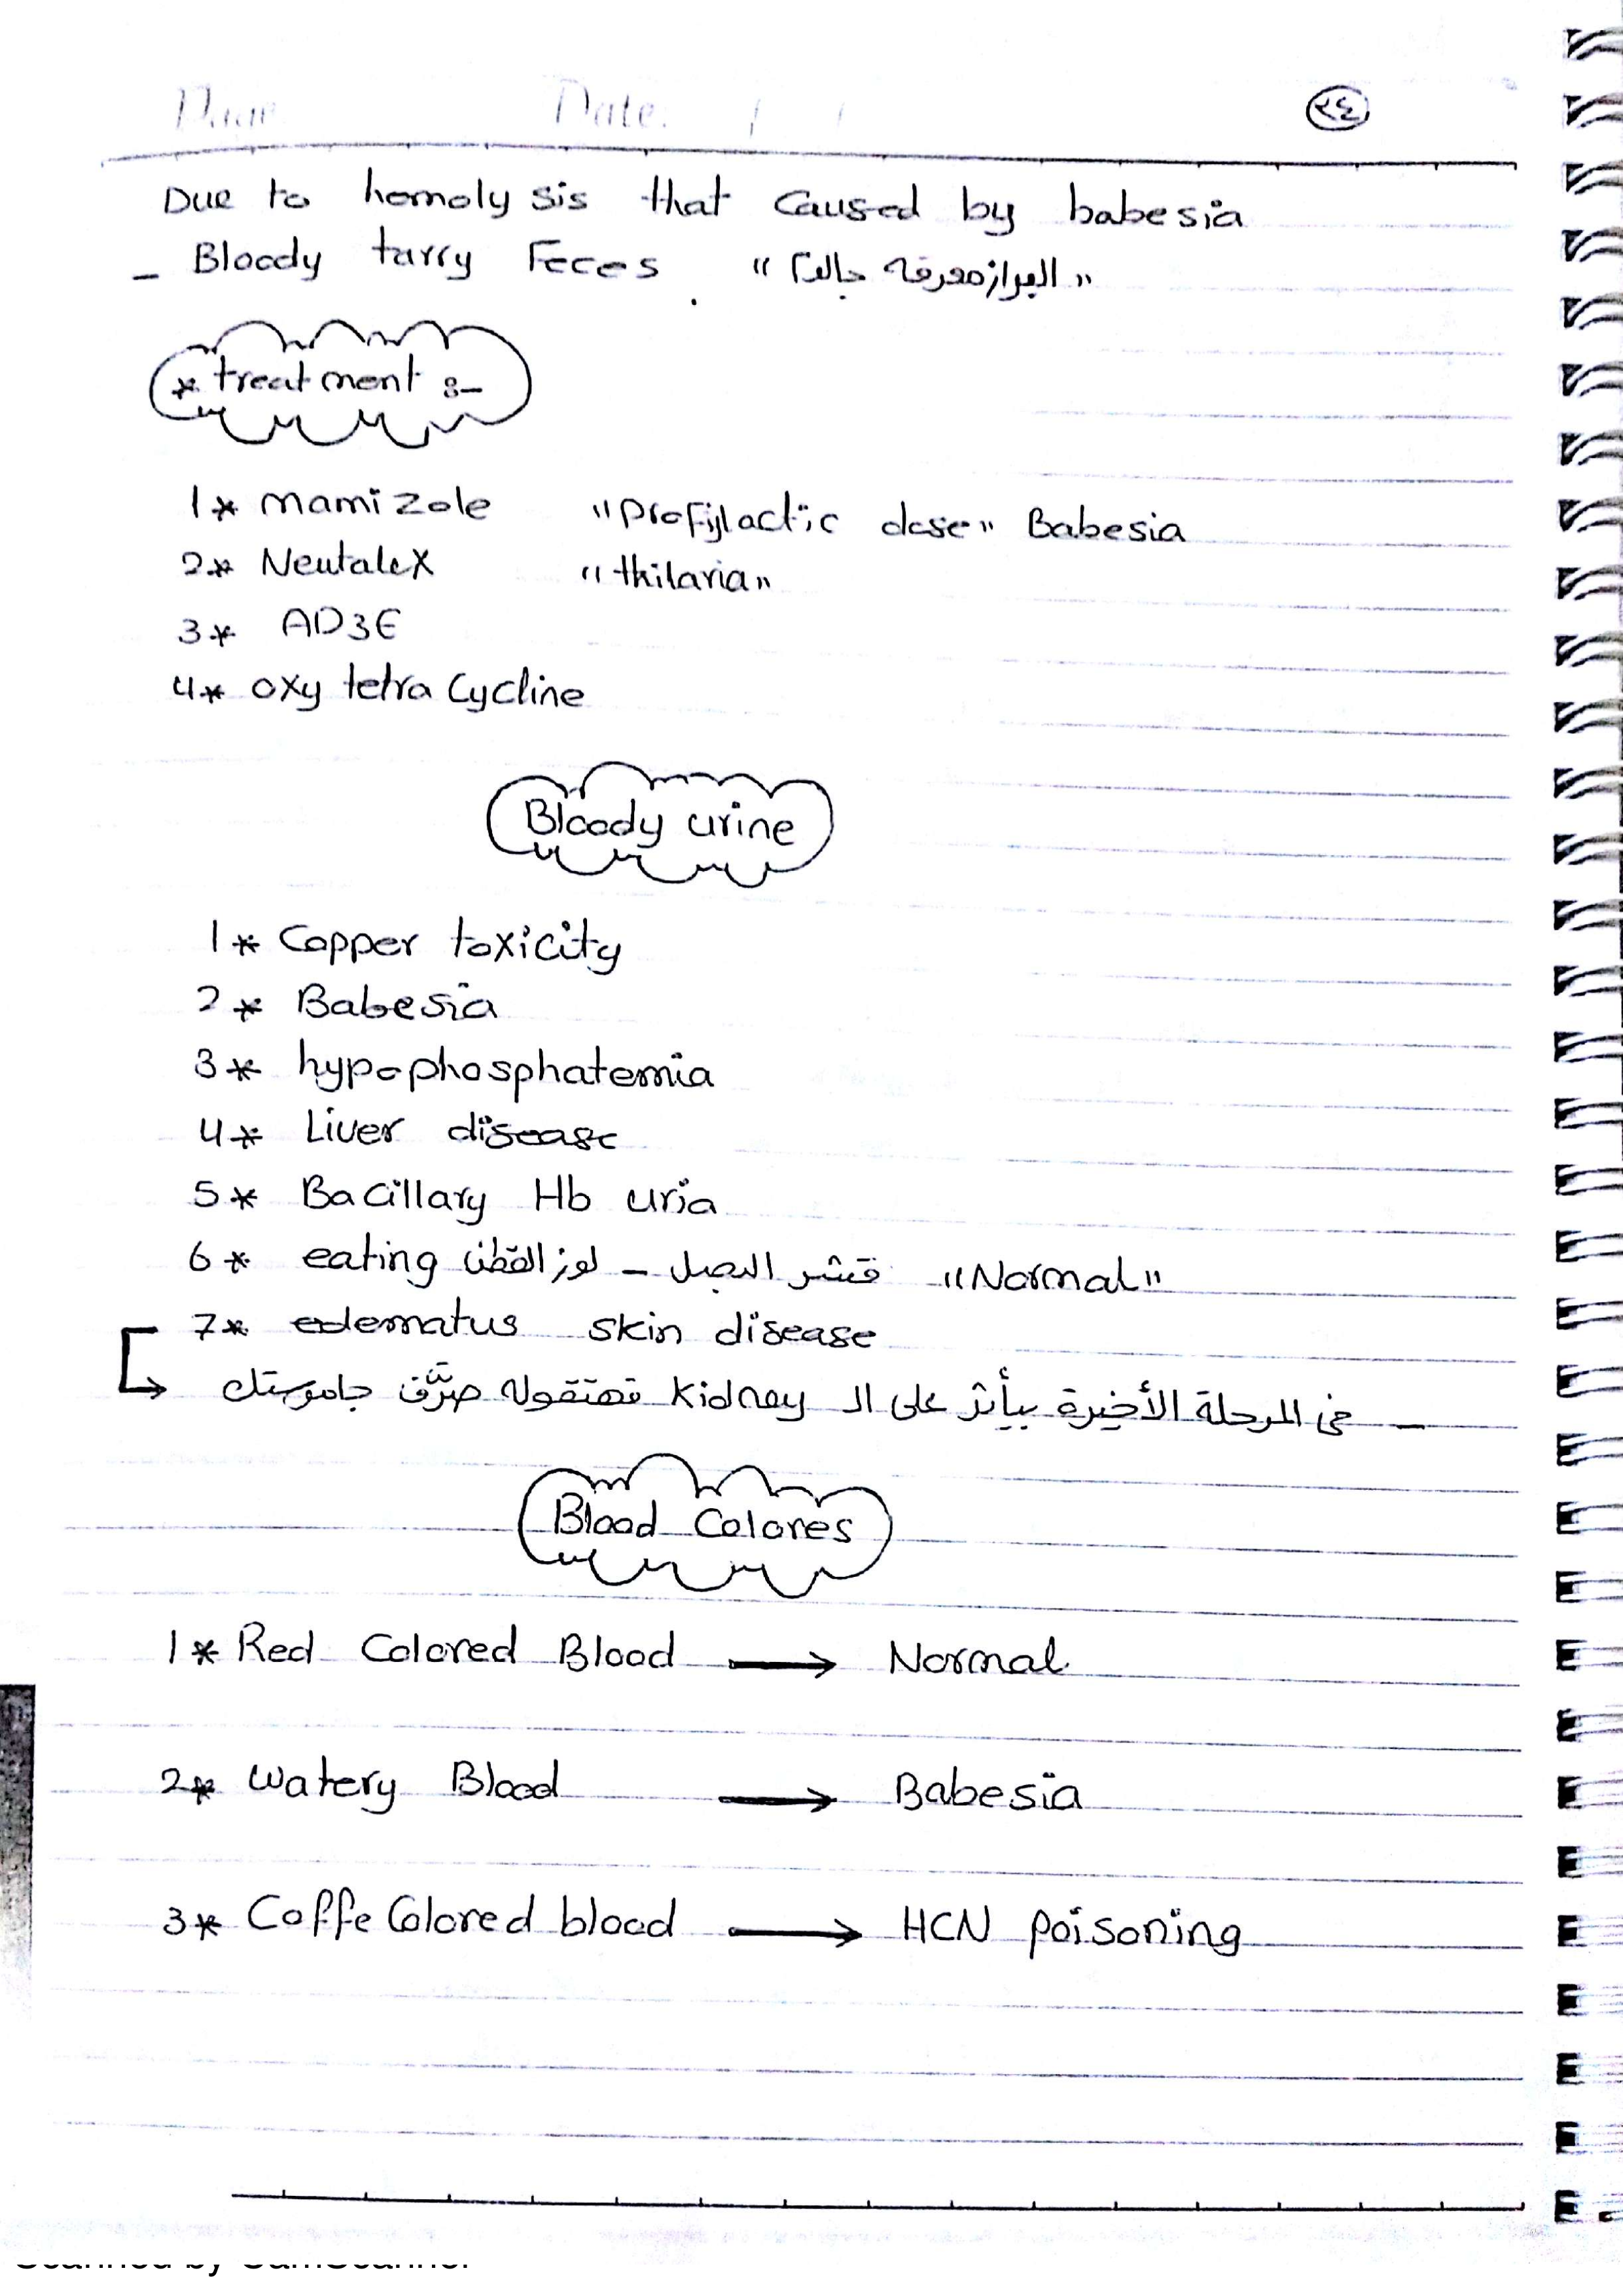 Page Date: / /
٢٤
Due to homolysis that caused by babesia
- Bloody tarry Feces. "البراز معرقه بالدم"
* treatment :-
1* mamizole "profylactic dose" Babesia
2* Neutalex "thilaria"
3* AD3E
4* oxy tetra cycline
Bloody urine
1* Copper toxicity
2* Babesia
3* hypophosphatemia
4* Liver disease
5* Bacillary Hb uria
6* eating لوز القطن - قشر البصل "Normal"
7* edematus skin disease
- في المرحلة الأخيرة بيأثر على ال Kidney فهتقوله صرّف جاموستك
Blood Colores
1* Red Colored Blood → Normal
2* Watery Blood → Babesia
3* Coffe Colored blood → HCN poisoning
Scanned by CamScanner